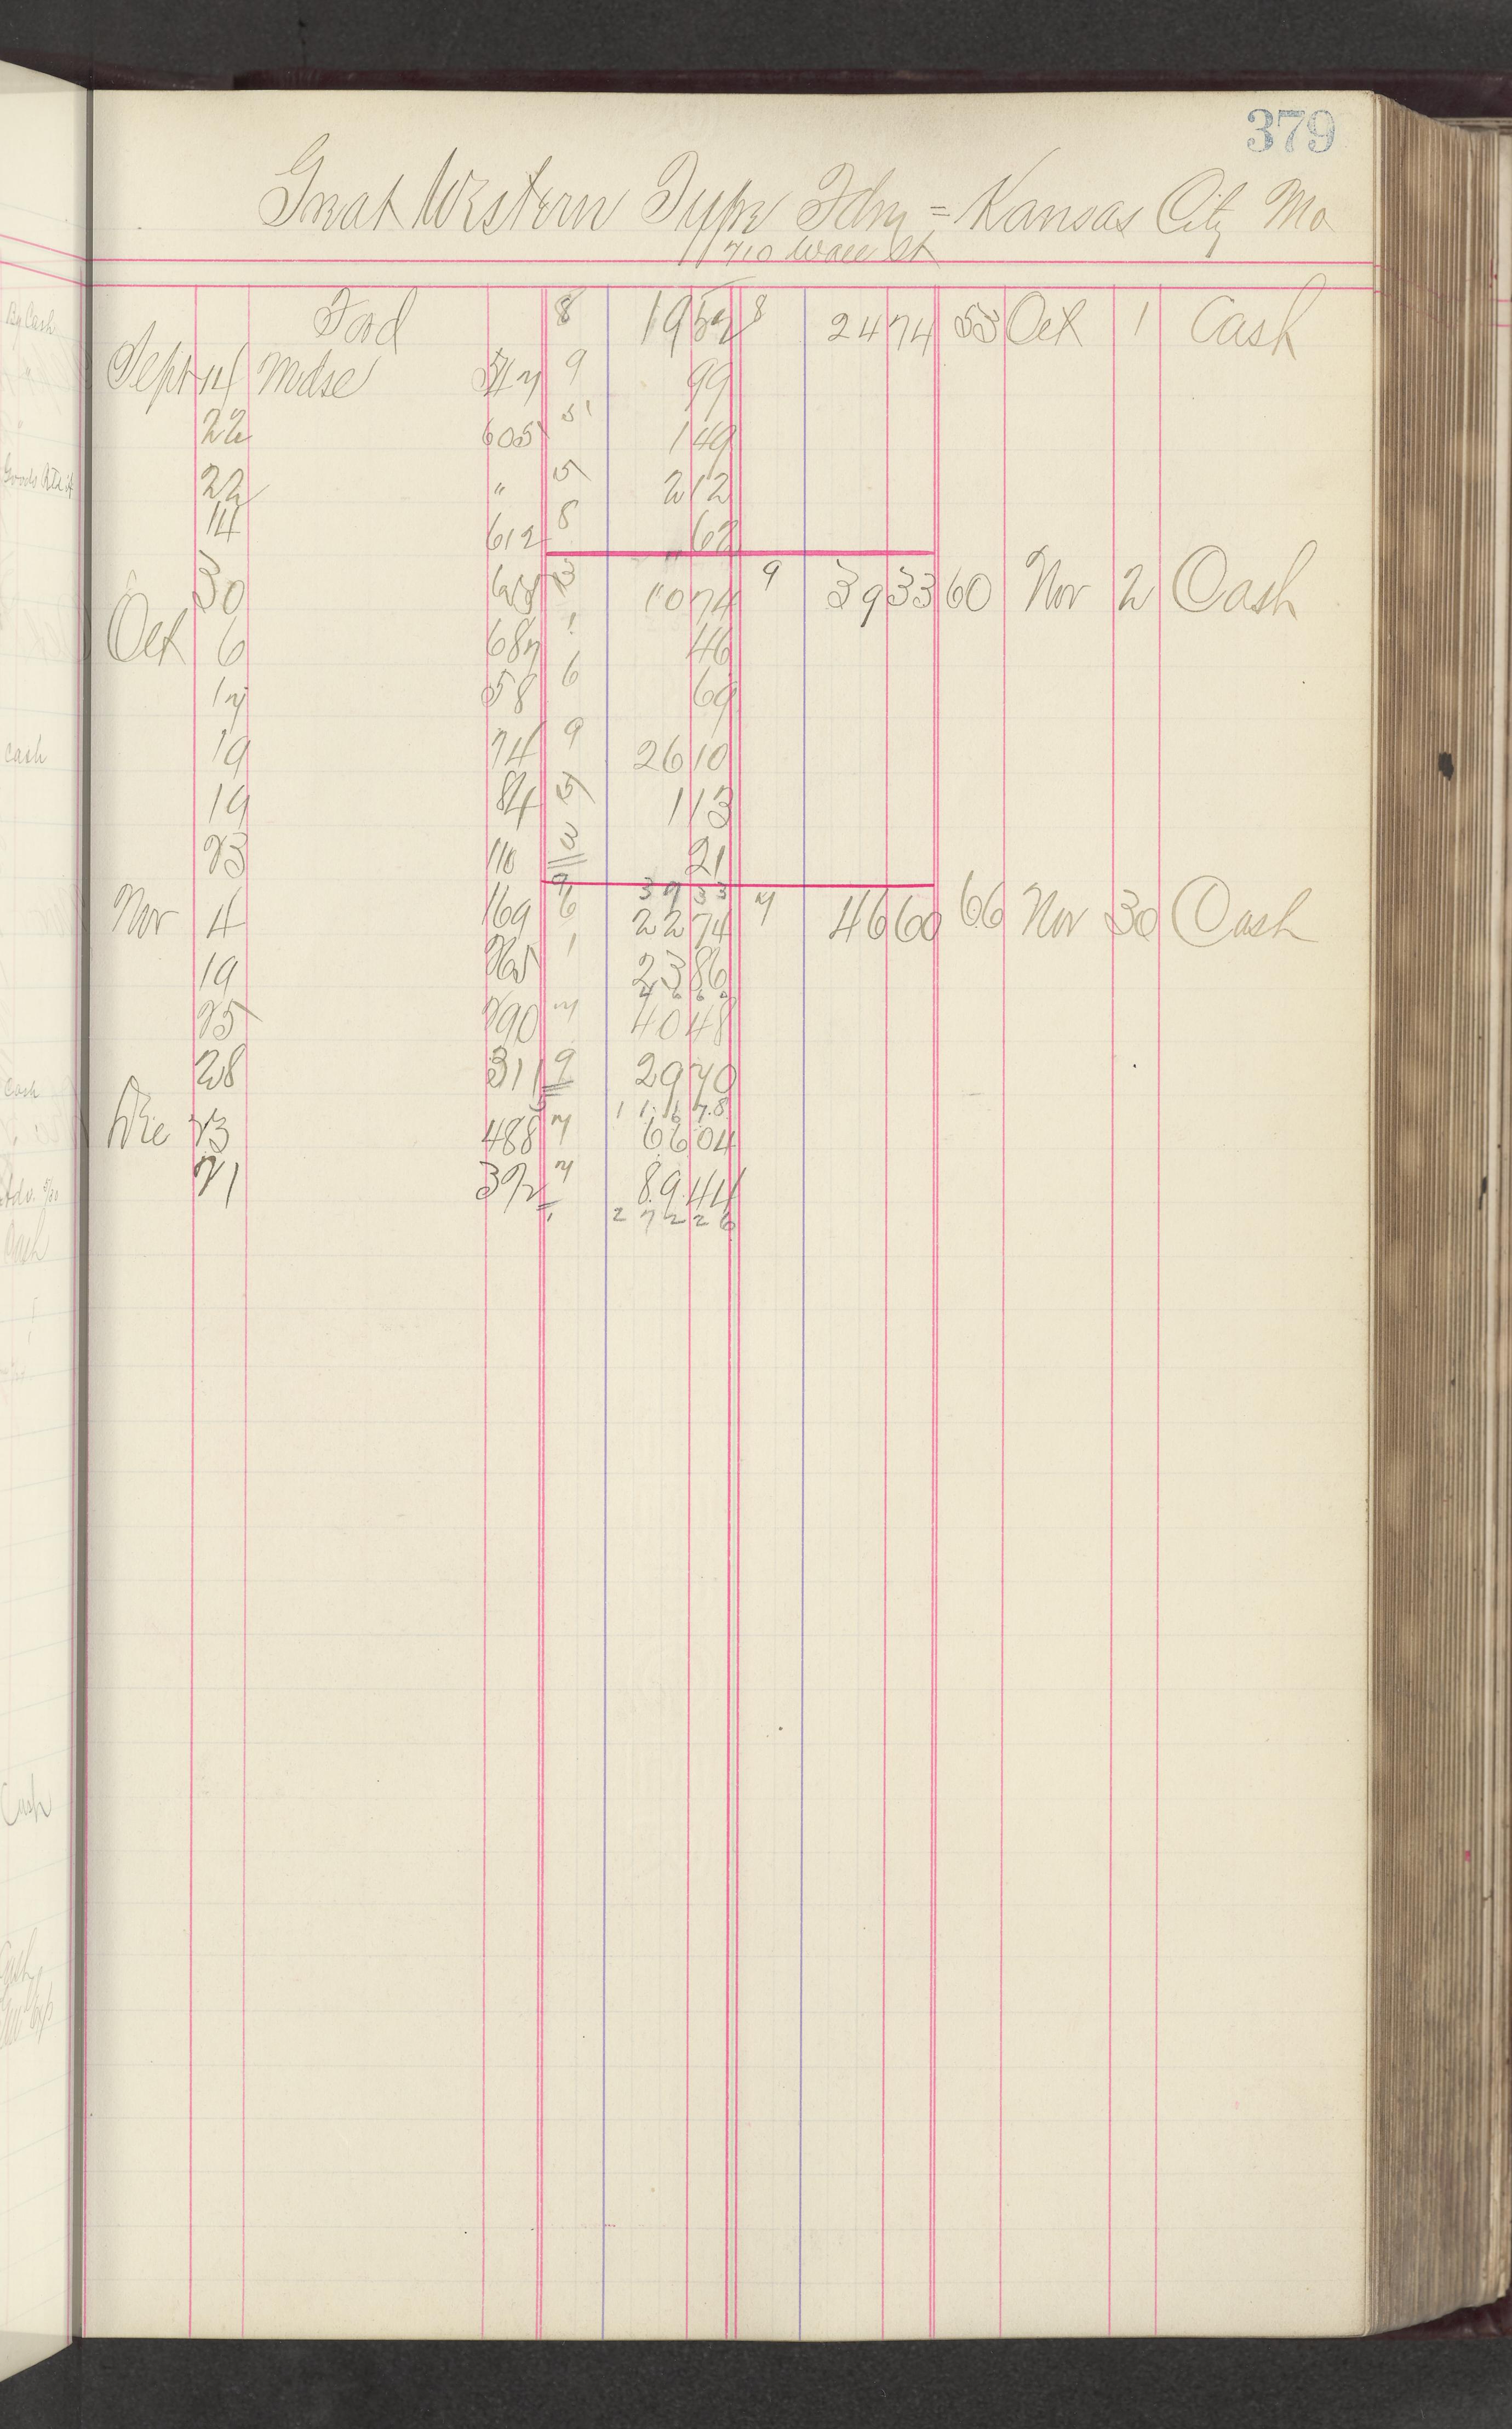 379
Great Western Type Fdry = Kansas City Mo
710 Wall St
Ford 8 19 52 8 24 74 53 Oct 1 Cash
Sept 14 Mdse 547 9 99
22 605 5 1 49
22 " 5 2 12
14 612 8 62
30 3 10 74 9 39 33 60 Nov 2 Cash
Oct 6 687 1 46
17 58 6 69
19 74 9 26 10
19 84 5 1 13
23 110 3 21
9 39 33
Nov 4 169 6 22 74 7 46 60 66 Nov 30 Cash
19 265 1 23 86
46 60
25 290 7 40 48
28 311 9 29 70
Dec 23 488 7 66 04
21 392 7 89 44
272 26